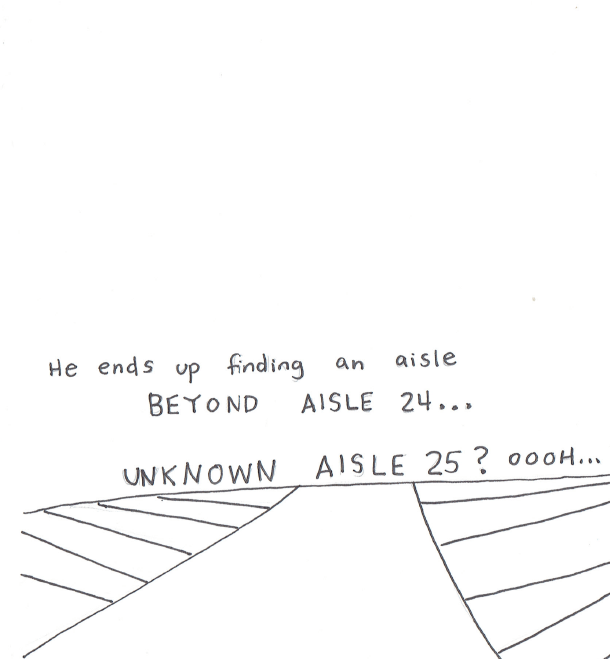 He ends up finding an aisle
BEYOND AISLE 24...
UNKNOWN AISLE 25? OOOH...